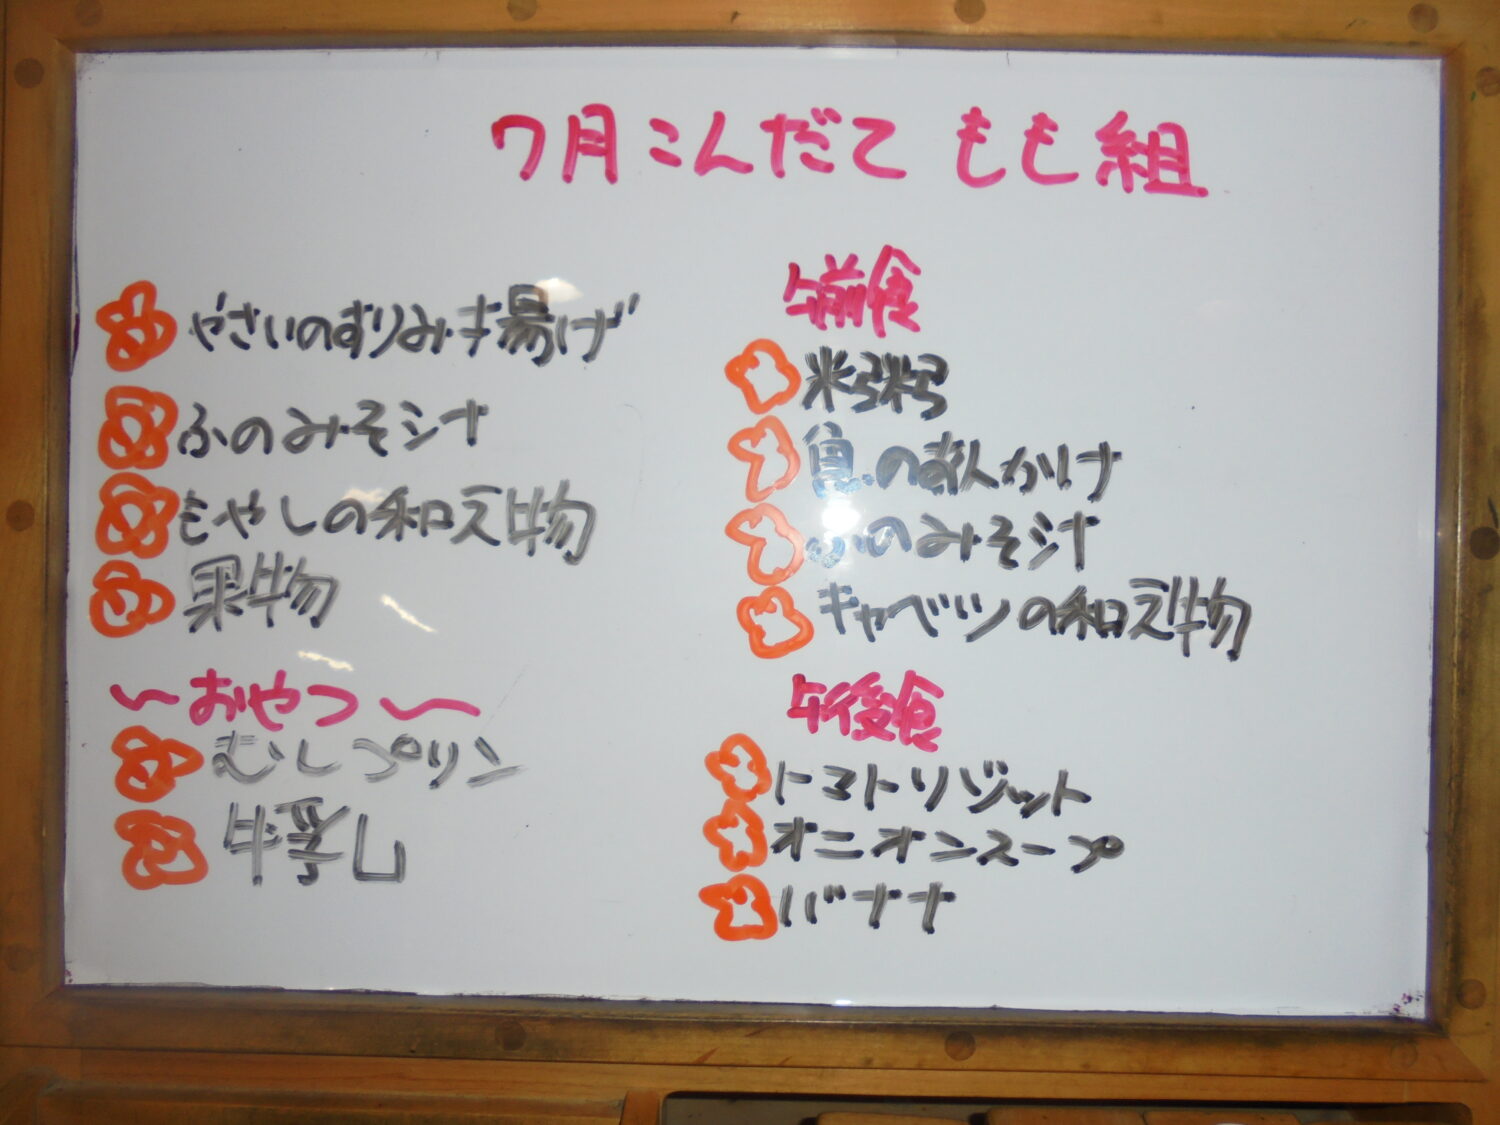 7月こんだて もも組
やさいのすりみ揚げ
ふのみそ汁
もやしの和え物
果物
〜おやつ〜
むしプリン
牛乳
午前食
魚のあんかけ
ふのみそ汁
キャベツの和え物
午後食
トマトリゾット
オニオンスープ
バナナ